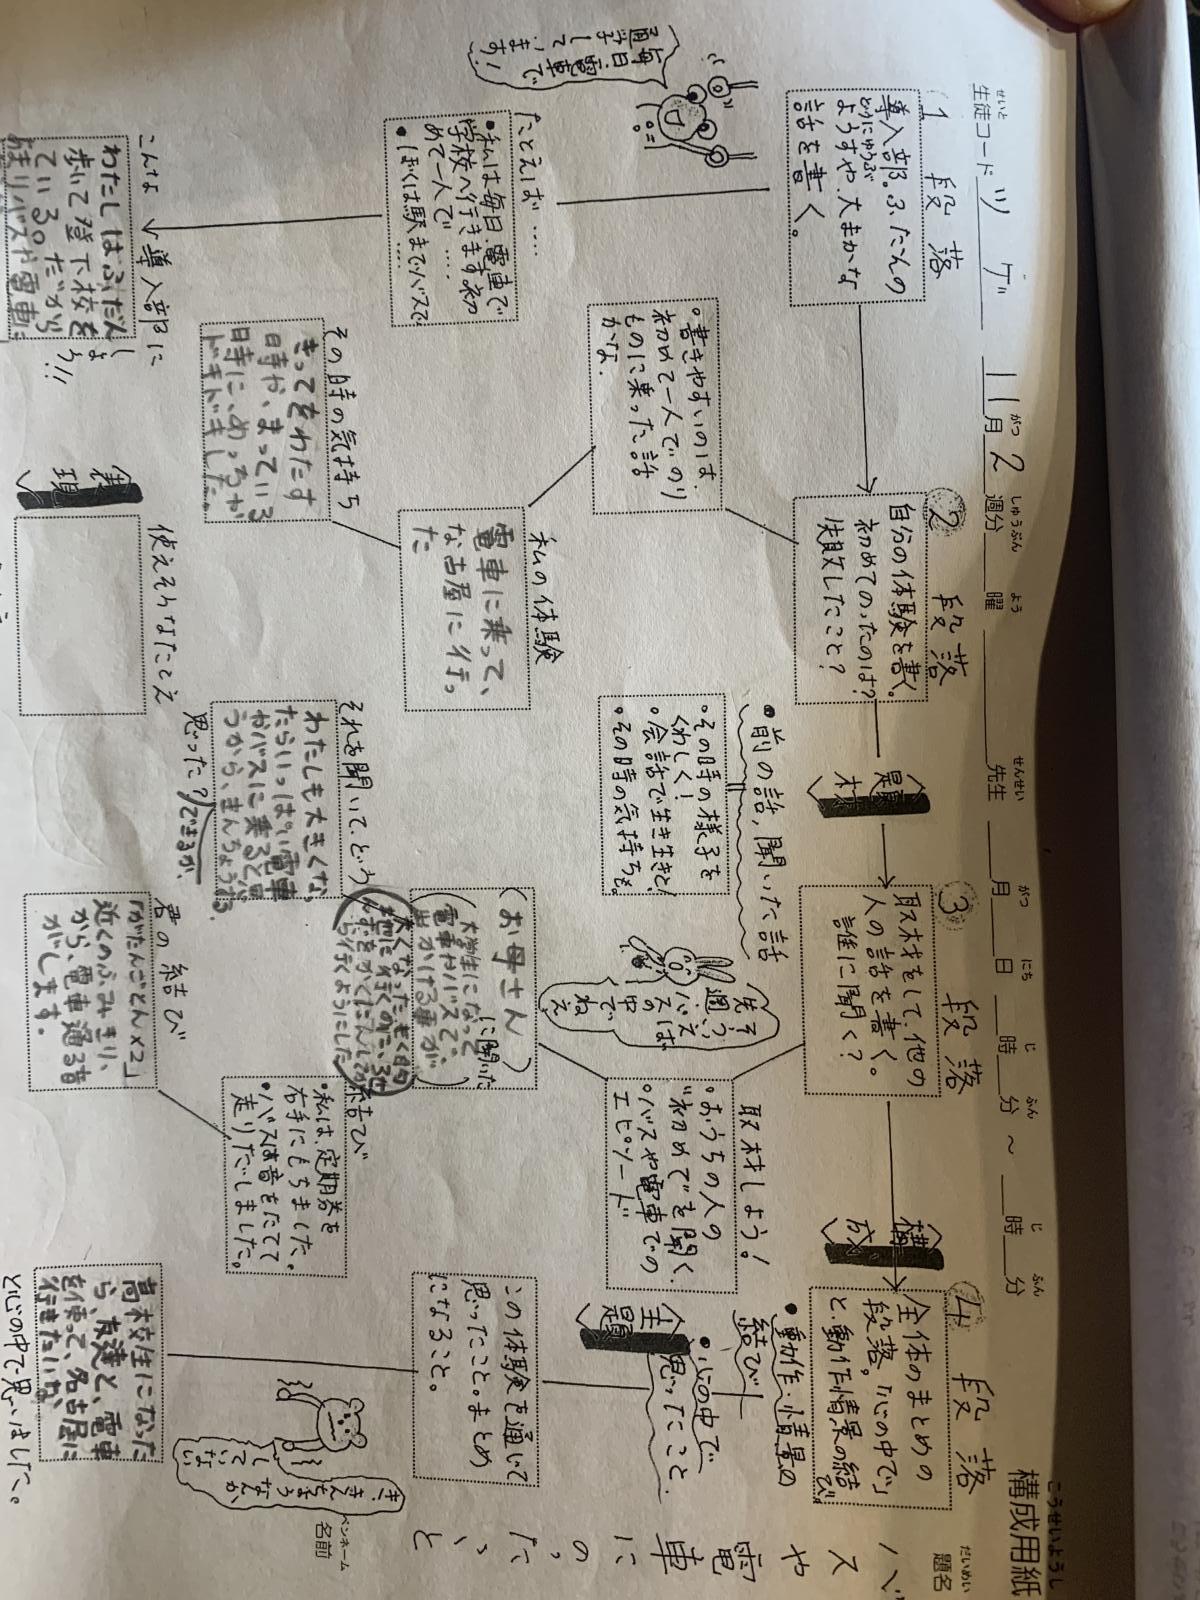 構成用紙
こうせいようし
題名
だいめい
バスや電車にのったこと
ペンネーム
名前
生徒コード ツゲ 11月2週分 曜 先生 月 日 時 分 ~ 時 分
せいと がつ しゅうぶん よう せんせい がつ にち じ ふん じ ふん
1 段落
導入部。ふだんの
どうにゅうぶ
ようすや、大まかな
話を書く。
毎日電車で
通学して
います!
たとえば……
・私は毎日、電車で
学校へ行きます。初
めて一人で……
・ぼくは駅までバスで
こんな導入部に
しよう!!
わたしはふだん
歩いて登下校を
ている。だから
あまりバスや電車に
② 段落
自分の体験を書く。
初めてのったのは?
失敗したこと?
・書きやすいのは、
初めて一人でのり
ものに乗った話
かな.
私の体験
電車に乗って、
な古屋に行っ
た
その時の気持ち
きってをわたす
時や、まっている
時に、めっちゃ
ドキドキした。
表現
使えそうなたとえ
題材
③ 段落
取材をして、他の
人の話を書く。
誰に聞く?
・前の話,聞いた話
・その時の様子を
くわしく!
・会話で生き生きと!
・その時の気持ちも。
先週、バスの中でね
そういえば
取材しよう!
・おうちの人の
"初めて"を聞く.
・バスや電車での
エピソード
(お母さん)に聞いた
大学生になって
電車やバスで、
出かける事が
それを聞いて、どう
思った?
わたしも大きくな
たらいっぱい電車
やバスに乗ると思
うから、きんちょうする。
できるが、
構成
4 段落
全体のまとめの
段落。「心の中で」
と、動作情景の結び。
・動作・情景の
結び
・心の中で
思ったこと、
主題
この体験を通いて
思ったこと。まとめ
になること。
結び
・私は、定期券を
右手にもちました。
・バスは音をたてて
走りだしました。
君の結び
「がたんごとん×2」
近くのふみきり、
から、電車通る音
がします。
高校生になった
ら、友達と、電車
を使って、名古屋に
行きたいな、
と心の中で思いました。
き、きんちょう
なんか
していない